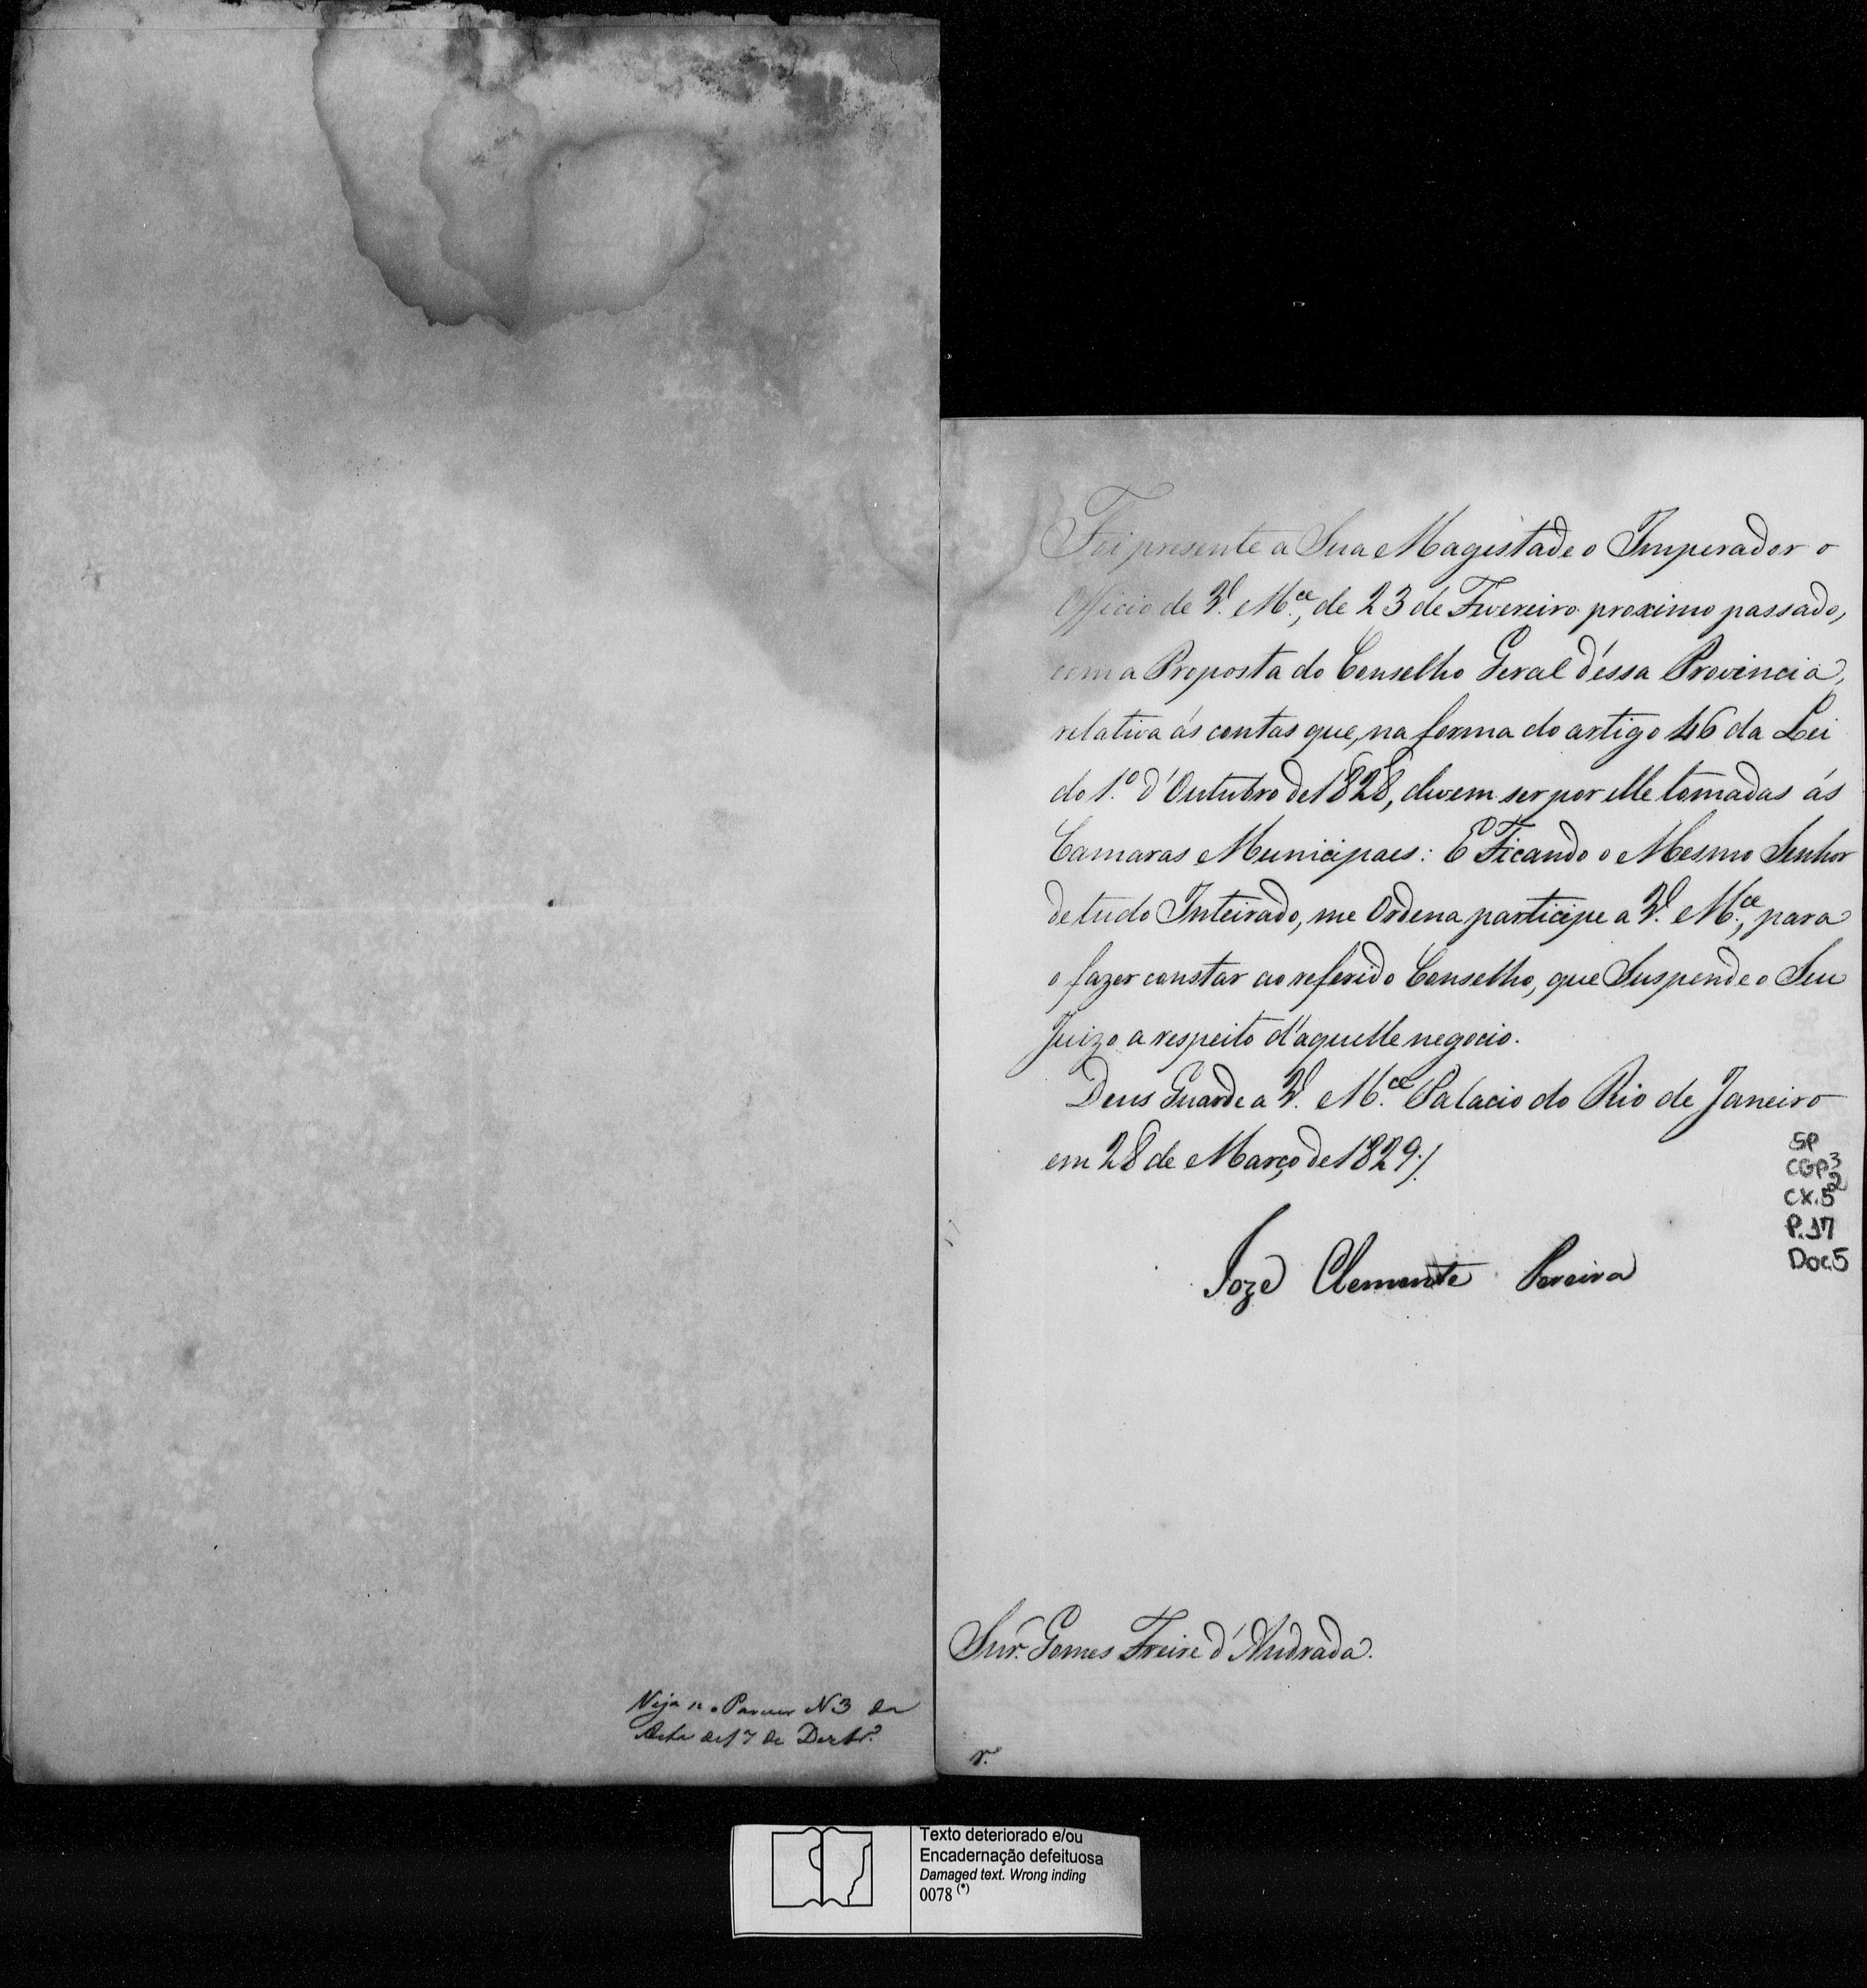 Veja se o Parecer N 3 da
Acta de 17 de Dezbr.º
Foi presente a Sua Magestade o Imperador o
Officio de V. M.ce, de 23 de Fevereiro proximo passado,
com a Proposta do Conselho Geral d'essa Provincia,
relativa ás contas que, na forma do artigo 46 da Lei
do 1.º d'Outubro de 1828, devem ser por elle tomadas ás
Camaras Municipaes: E Ficando o Mesmo Senhor
de tudo Inteirado, me Ordena participe a V. M.ce, para
o fazer constar ao referido Conselho, que Suspende o Seu
Juizo a respeito d'aquelle negocio.
Deus Guarde a V. M.ce Palacio do Rio de Janeiro
em 28 de Março de 1829./.
Joze Clemente Pereira
SP
CGP3
CX.52
P.17
Doc5
Snr. Gomes Freire d'Andrada.
Texto deteriorado e/ou
Encadernação defeituosa
Damaged text. Wrong inding
0078 (*)